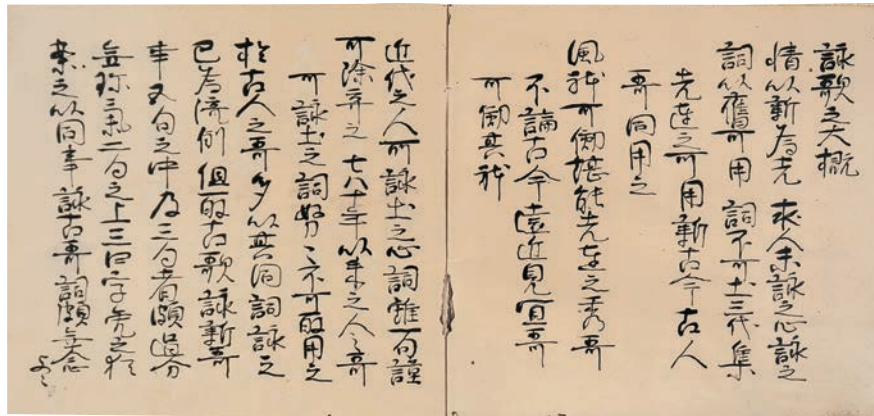 詠歌之大概
情以新為先 求人未詠之心詠之
詞以舊可用 詞不可出三代集
先達之所用新古今古人
哥同用之
風躰可効堪能先達之秀哥
不論古今遠近見宜哥
可効其躰
近代之人所詠出之心詞雖一句謹
可除弃之 七八十年以来之人々哥
所詠出之詞努々不可取用之
於古人之哥多以其同詞詠之
已為流例 但取古歌詠新哥
事 五句之中及三句者頗過分
無珍氣 二句之上三四字免之 猶
案之以同事詠古哥詞頗無念